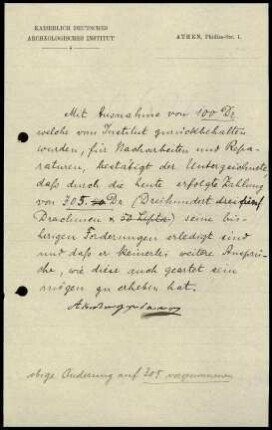 KAISERLICH DEUTSCHES
ARCHÄOLOGISCHES INSTITUT
ATHEN, Phidias-Str. 1.
Mit Ausnahme von 100 Dr
welche vom Institut zurückbehalten
wurden, für Nacharbeiten und Repa-
raturen, bestätigt der Unterzeichnete,
daß durch die heute erfolgte Zahlung
von 305.- Dr (Dreihundert fünf
Drachmen) seine bis-
herigen Forderungen erledigt sind
und daß er keinerlei weitere Ansprü-
che, wie diese auch geartet sein
mögen zu erheben hat.
obige Änderung auf 305 vorgenommen